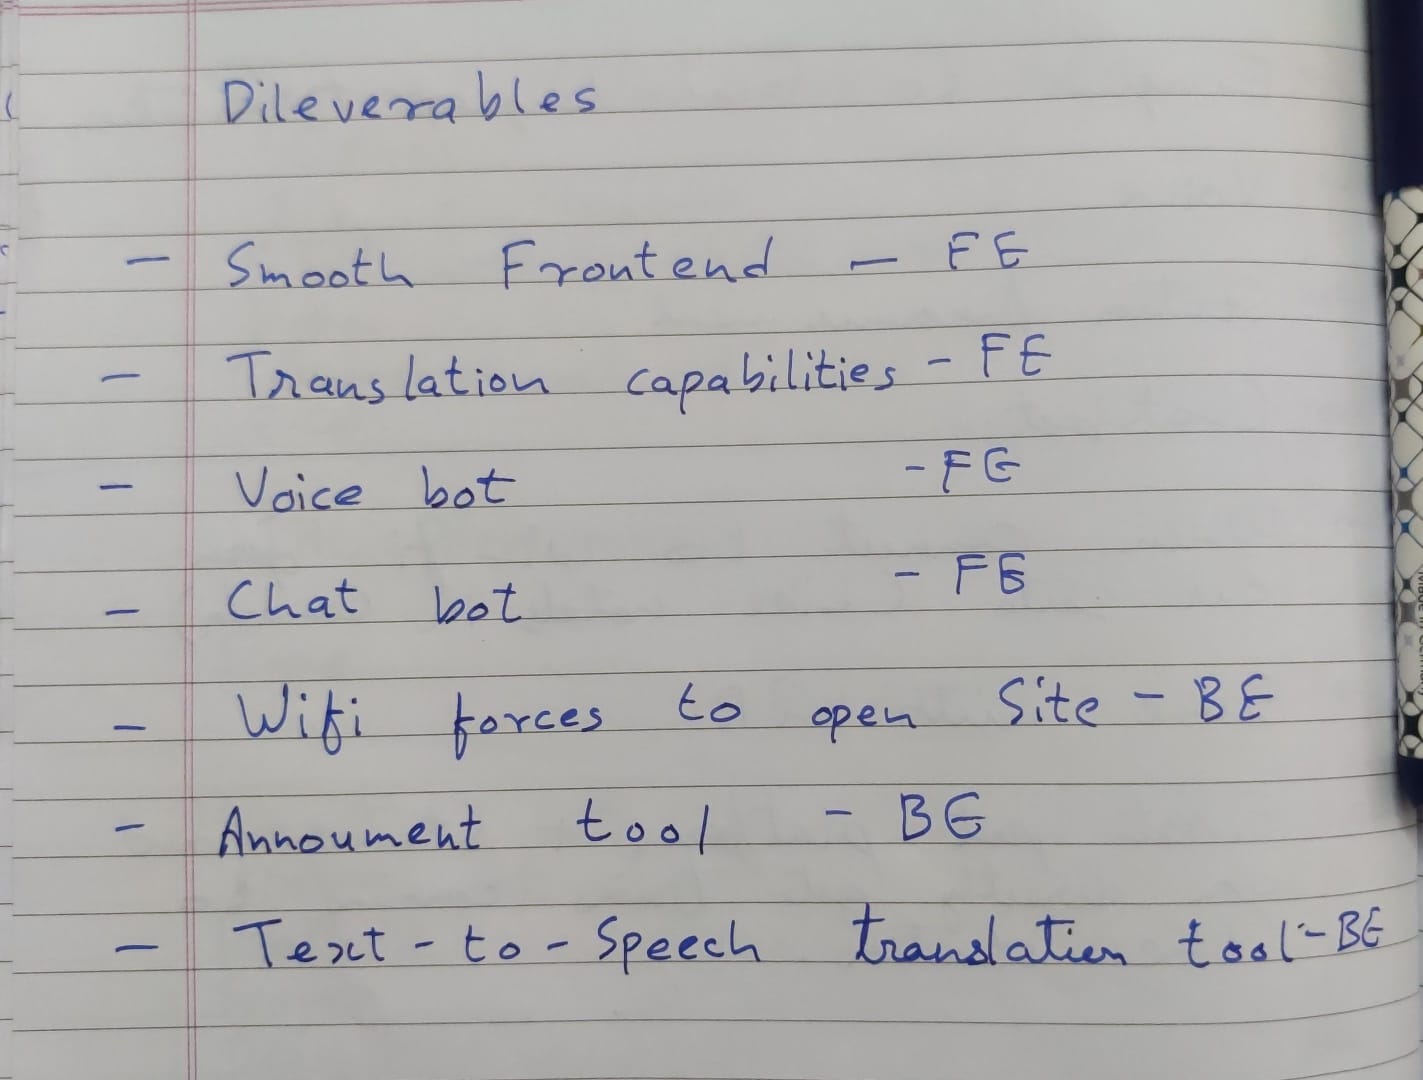 Dileverables
- Smooth Frontend - FE
- Translation capabilities - FE
- Voice bot - FE
- Chat bot - FE
- Wifi forces to open Site - BE
- Annoument tool - BE
- Text-to-Speech translation tool - BE